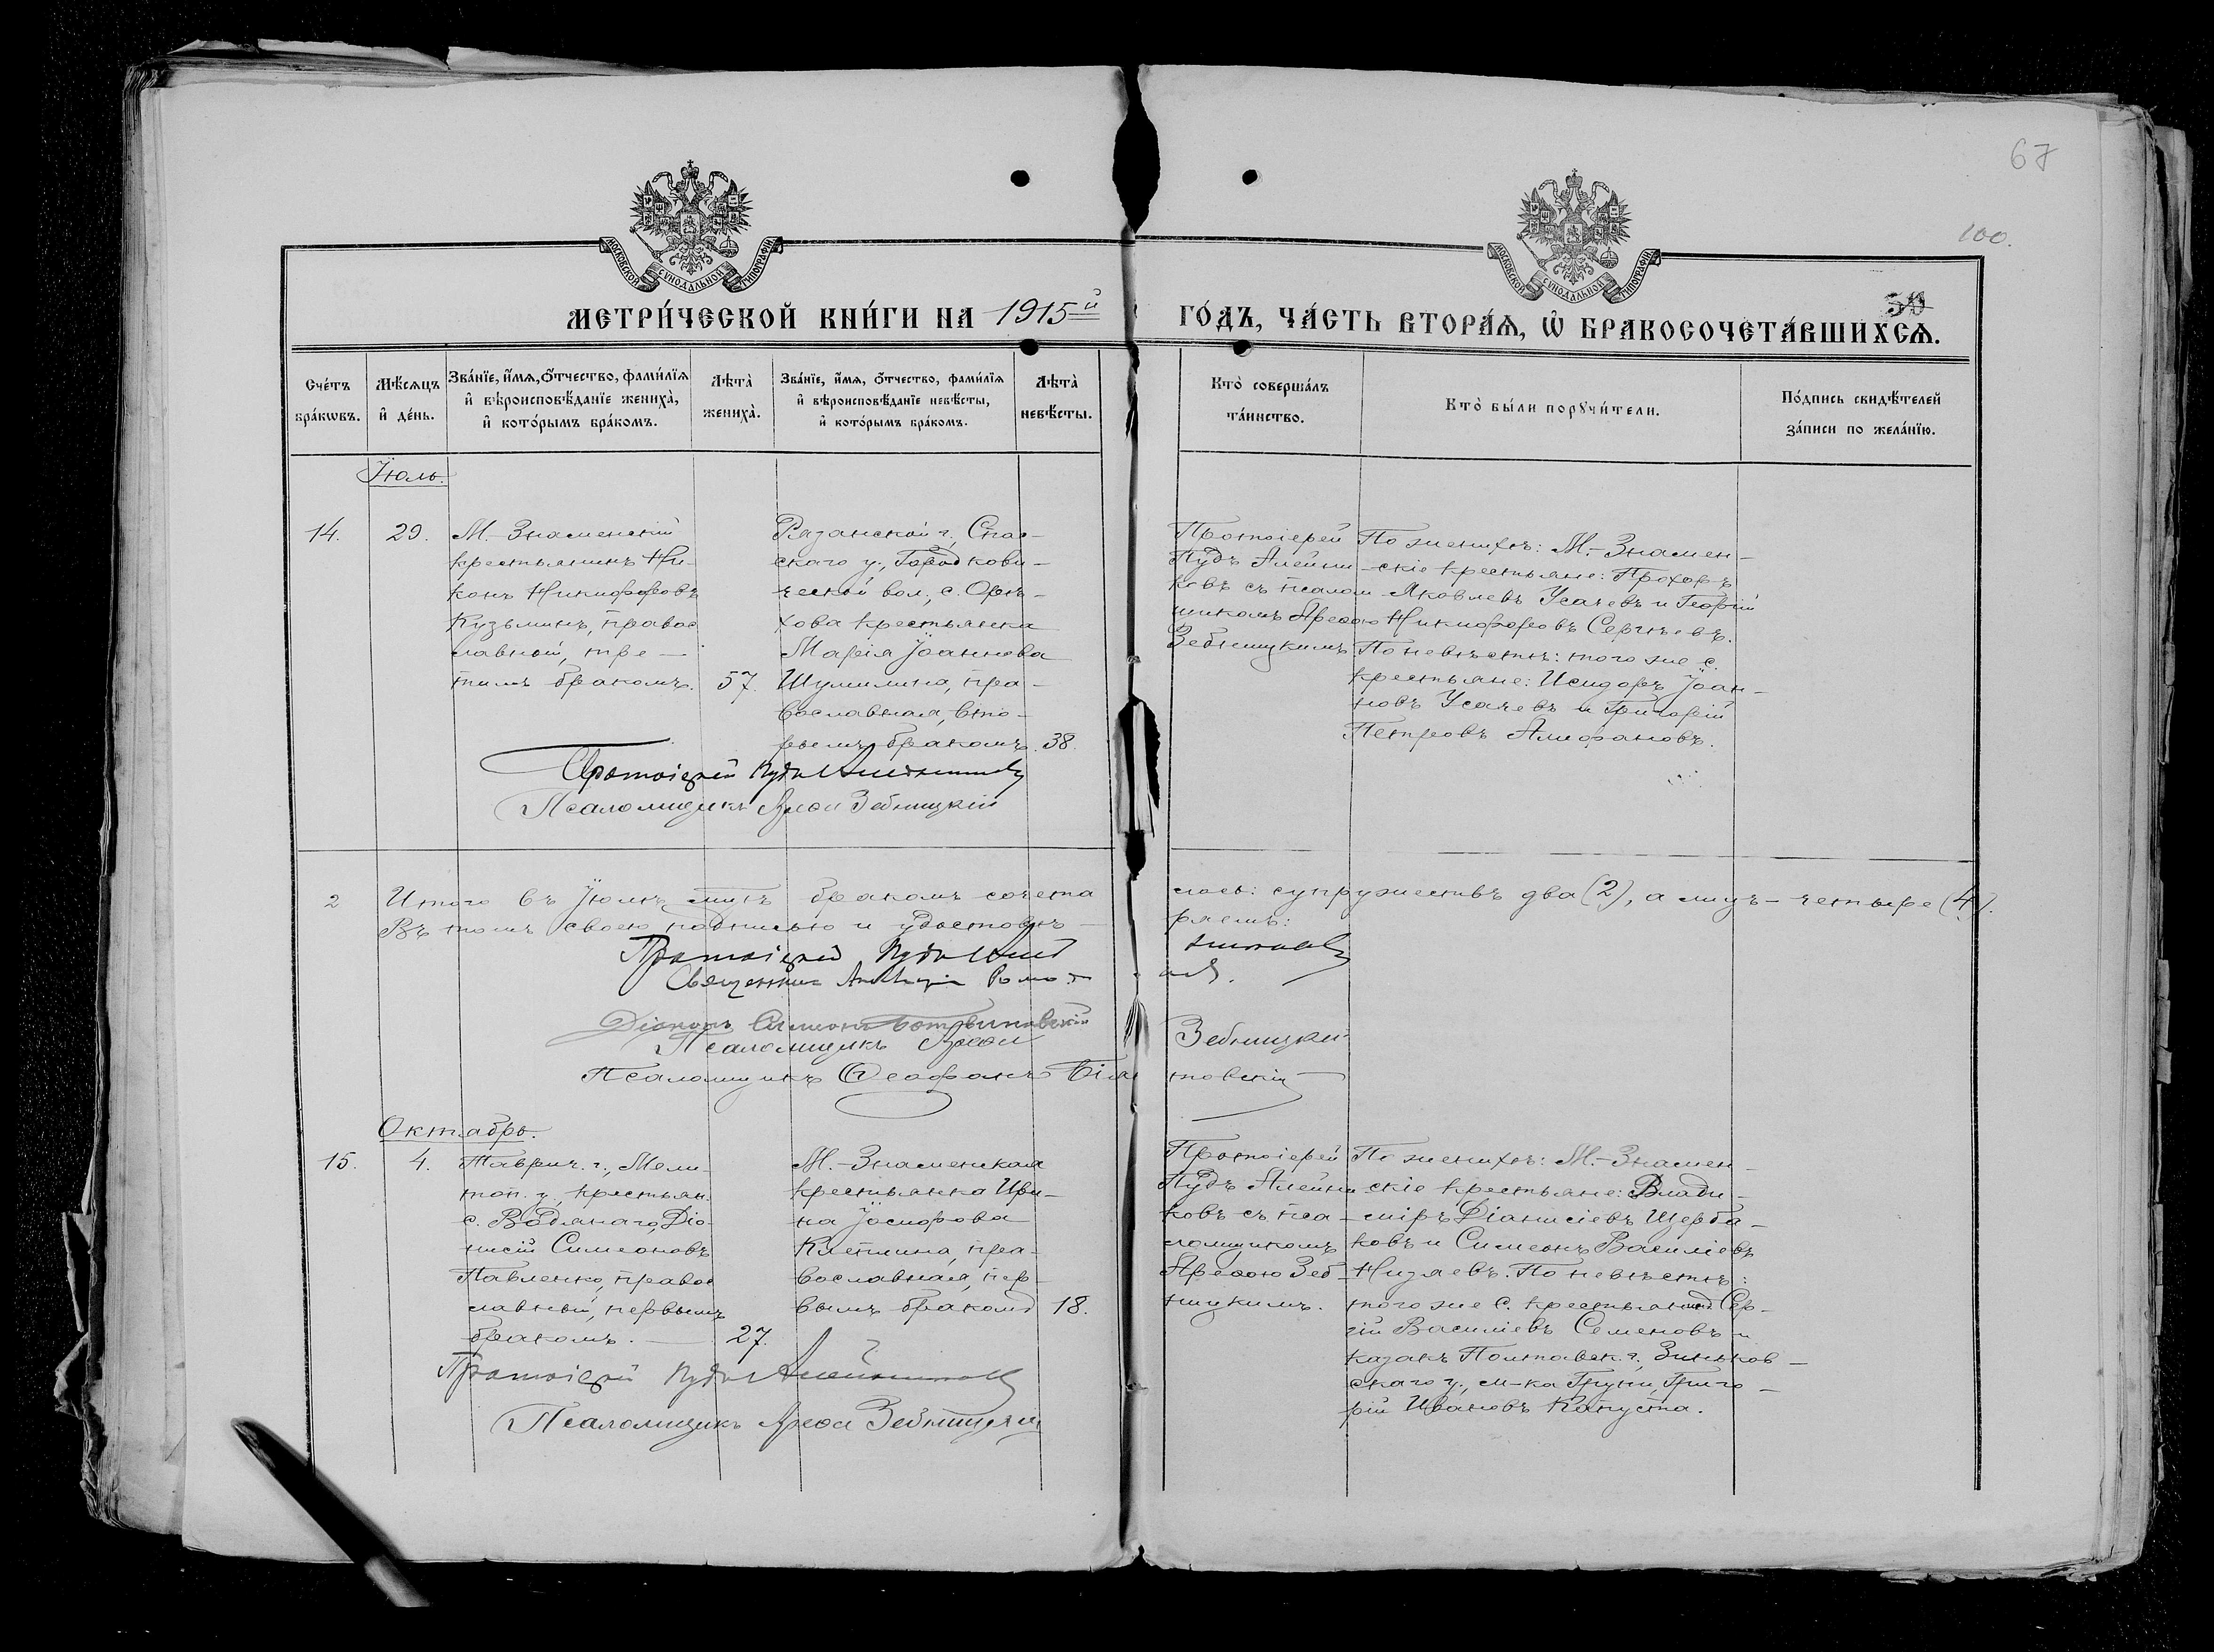 67
100.
50
МОСКОВСКОЙ СѴНОДАЛЬНОЙ ТИПОГРАФІИ
МОСКОВСКОЙ СѴНОДАЛЬНОЙ ТИПОГРАФІИ
МЕТРИ́ЧЕСКОЙ КНИ́ГИ НА 1915й
ГО́ДЪ, ЧА́СТЬ ВТОРА́Ѧ, Ѡ҆ БРАКОСОЧЕТА́ВШИХСѦ.
Сче́тъ
бра́кѡвъ.
Мѣ́сяцъ
и҆ де́нь.
Зва́нїе, и҆́мѧ, ѻ҆́тчество, фами́лїѧ
и҆ вѣроисповѣ́данїе жениха̀,
и҆ кото́рымъ бра́комъ.
Лѣта̀
жениха̀.
Зва́нїе, и҆́мѧ, ѻ҆́тчество, фами́лїѧ
и҆ вѣроисповѣ́данїе невѣ́сты,
и҆ кото́рымъ бра́комъ.
Лѣта̀
невѣ́сты.
Кто̀ соверша́лъ
та́инство.
Кто̀ бы́ли порꙋчи́тели.
По́дпись свидѣ́телей
за́писи по жела́нїю.
Іюль.
14.
29.
М.-Знаменскій
крестьянинъ Ни-
конъ Никифоровъ
Кузьминъ, правос
лавный, тре-
тимъ бракомъ.
57.
Рязанской г., Спас-
скаго у., Городкови-
ческой вол., с. Орѣ-
хова крестьянка
Марія Іоаннова
Шумилина, пра-
вославная, вто-
рымъ бракомъ.
38.
Протоіерей
Пудъ Алейни-
ковъ съ псалом
щикомъ Арефою
Зебницкимъ.
По женихѣ: М.-Знамен-
скіе крестьяне: Прохоръ
Яковлевъ Усачевъ и Георгій
Никифоровъ Сергѣевъ.
По невѣстѣ: того же с.
крестьяне: Исидоръ Іоан-
новъ Усачевъ и Григорій
Петровъ
Протоіерей Пудъ Алейниковъ
Псаломщикъ Арефа Зебницкій
2
Итого въ Іюлѣ м-цѣ бракомъ сочета
лось: супружествъ два (2), а лицъ - четыре (4).
Въ томъ своею подписью и удостовѣ-
ряемъ:
Протоіерей Пудъ Алей
никовъ
Священникъ
Діаконъ Симеонъ
Псаломщикъ Арефа
Зебницкій
Псаломщикъ Ѳеофанъ
новскій
Октябрь.
15.
4.
Таврич. г., Мели-
топ. у., крестьян.
с. Водянаго, Діо-
нисій Симеоновъ
Павленко, правос
лавный, первымъ
бракомъ.
27.
М.-Знаменская
крестьянка Ири-
на Іосифова
Клепина, пра-
вославная, пер-
вымъ бракомъ
18.
Протоіерей
Пудъ Алейни
ковъ съ пса-
ломщикомъ
Арефою Зеб-
ницкимъ.
По женихѣ: М.-Знамен-
скіе крестьяне: Влади-
міръ Діонисіевъ Щерба-
ковъ и Симеонъ Василіевъ
Низяевъ. По невѣстѣ:
того же с. крестьянинъ Сер-
гій Василіевъ Семеновъ и
казакъ Полтавск. г., Зиньков-
скаго у., м-ка Груни, Григо-
рій Ивановъ Капуста.
Протоіерей Пудъ Алейниковъ
Псаломщикъ Арефа Зебницкій